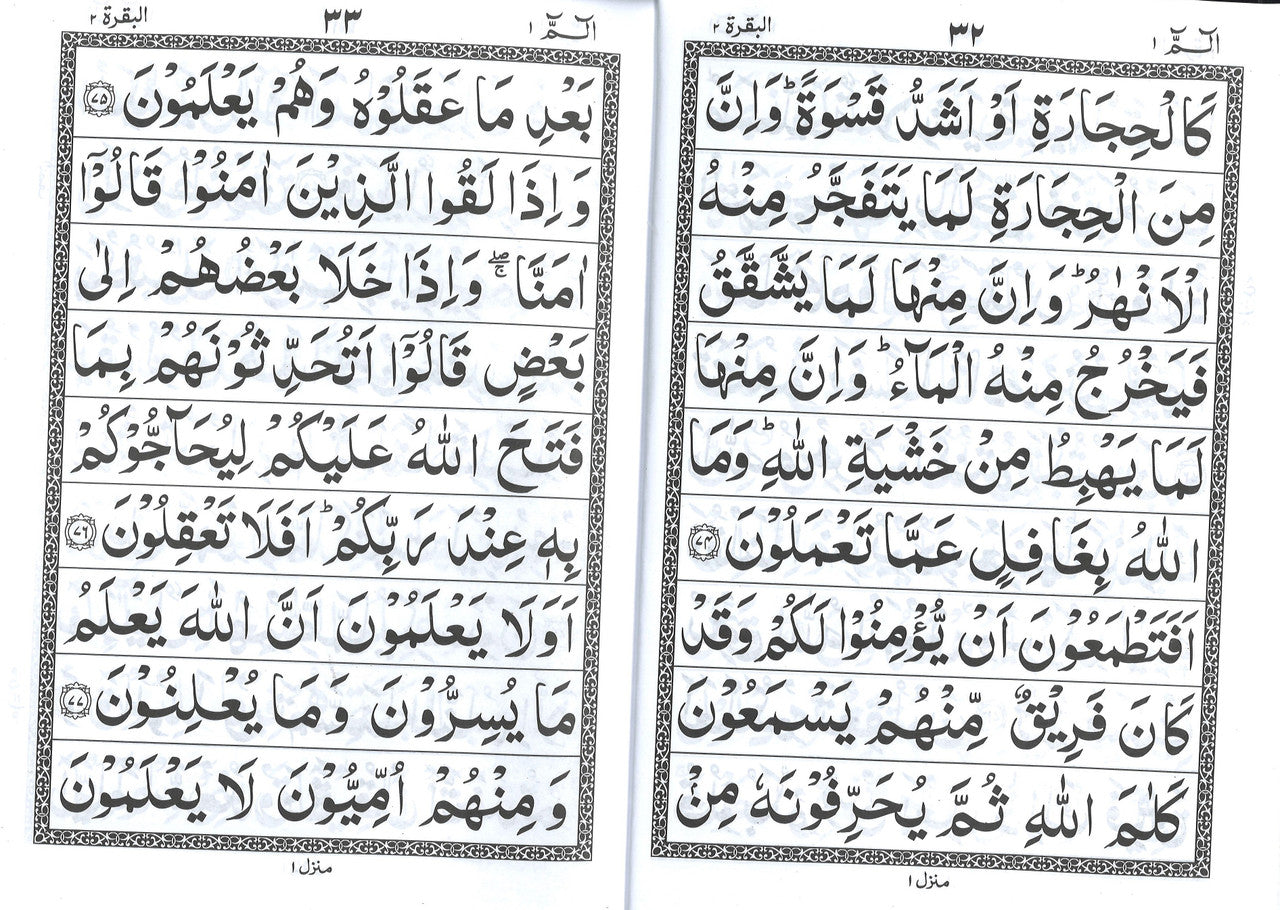 الٓمّٓ ١
٣٢
البقرة ٢
كَالْحِجَارَةِ اَوْ اَشَدُّ قَسْوَةً ؕ وَاِنَّ
مِنَ الْحِجَارَةِ لَمَا يَتَفَجَّرُ مِنْهُ
الْاَنْهٰرُ ؕ وَاِنَّ مِنْهَا لَمَا يَشَّقَّقُ
فَيَخْرُجُ مِنْهُ الْمَآءُ ؕ وَاِنَّ مِنْهَا
لَمَا يَهْبِطُ مِنْ خَشْيَةِ اللّٰهِ ؕ وَمَا
اللّٰهُ بِغَافِلٍ عَمَّا تَعْمَلُوْنَ ﴿۷۴﴾
اَفَتَطْمَعُوْنَ اَنْ يُّؤْمِنُوْا لَكُمْ وَقَدْ
كَانَ فَرِيْقٌ مِّنْهُمْ يَسْمَعُوْنَ
كَلٰمَ اللّٰهِ ثُمَّ يُحَرِّفُوْنَهٗ مِنْۢ
منزل ١
الٓمّٓ ١
٣٣
البقرة ٢
بَعْدِ مَا عَقَلُوْهُ وَهُمْ يَعْلَمُوْنَ ﴿۷۵﴾
وَاِذَا لَقُوا الَّذِيْنَ اٰمَنُوْا قَالُوْٓا
اٰمَنَّا ۖۚ وَاِذَا خَلَا بَعْضُهُمْ اِلٰى
بَعْضٍ قَالُوْٓا اَتُحَدِّثُوْنَهُمْ بِمَا
فَتَحَ اللّٰهُ عَلَيْكُمْ لِيُحَآجُّوْكُمْ
بِهٖ عِنْدَ رَبِّكُمْ ؕ اَفَلَا تَعْقِلُوْنَ ﴿۷۶﴾
اَوَلَا يَعْلَمُوْنَ اَنَّ اللّٰهَ يَعْلَمُ
مَا يُسِرُّوْنَ وَمَا يُعْلِنُوْنَ ﴿۷۷﴾
وَمِنْهُمْ اُمِّيُّوْنَ لَا يَعْلَمُوْنَ
منزل ١